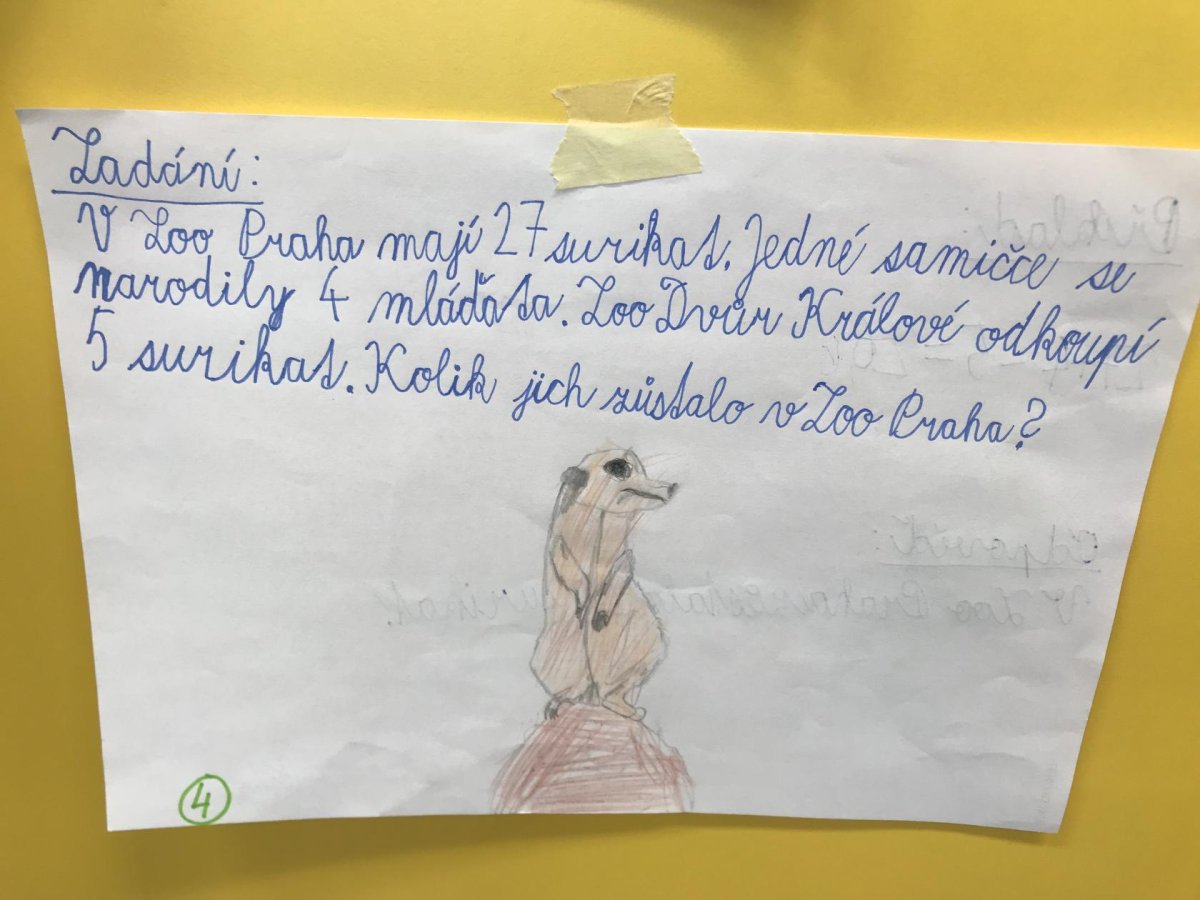 Zadání:
V Zoo Praha mají 27 surikat. Jedné samičce se
narodily 4 mláďata. Zoo Dvůr Králové odkoupí
5 surikat. Kolik jich zůstalo v Zoo Praha?
Příklad:
Odpověď:
V Zoo Praha surikat.
4